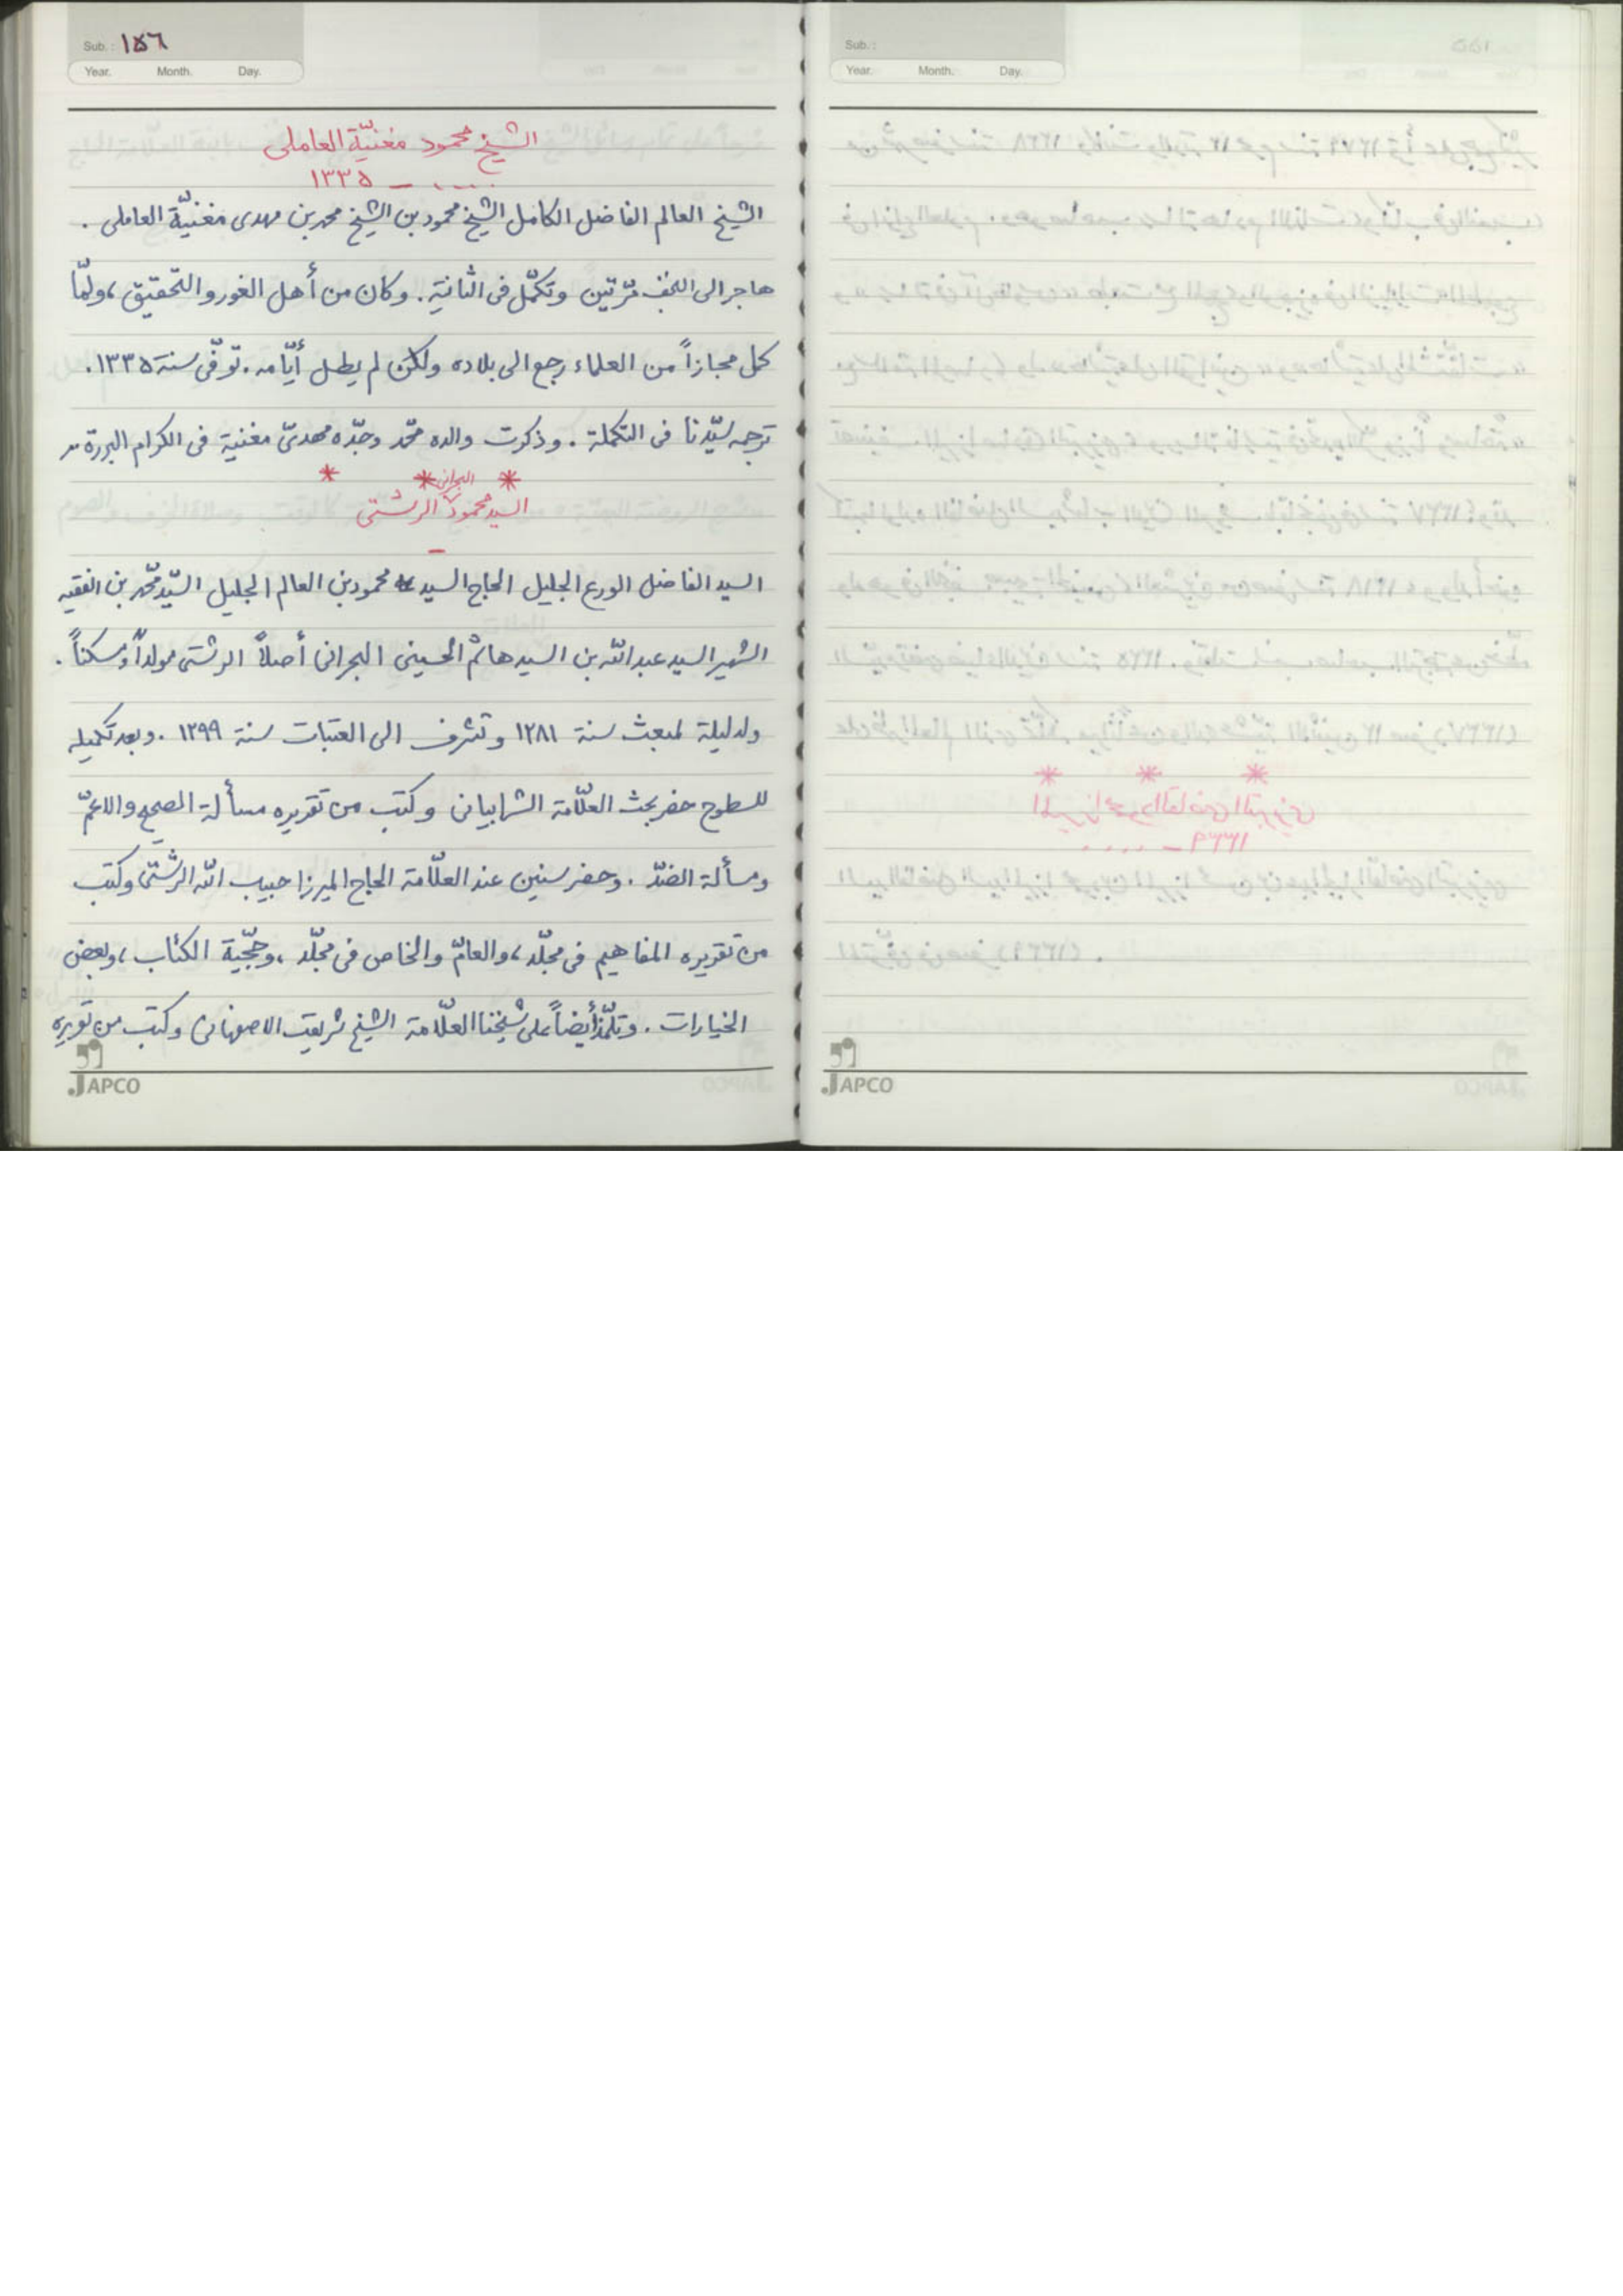 Sub.: ١٥٦
Year. Month. Day.
الشيخ محمود مغنيّة العاملى
.... – ١٣٣٥
الشيخ العالم الفاضل الكامل الشيخ محمود بن الشيخ محمد بن مهدى مغنيّة العاملى .
هاجر الى النجف مرّتين وتكمّل فى الثانية . وكان من أهل الغور والتحقيق ، ولمّا
كمل مجازاً من العلماء رجع الى بلاده ولكن لم يطل أيّامه . توفّى سنة ١٣٣٥ .
ترجمه سيّدنا فى التكملة . وذكرت والده محمّد وجدّه مهدىّ مغنية فى الكرام البررة
* * *
السيد محمود البحرانى الرشتى
–
السيد الفاضل الورع الجليل الحاج السيد محمود بن العالم الجليل السيّد محمّد بن الفقيه
الشهير السيد عبد اللّه بن السيد هاشم الحسينى البحرانى أصلاً الرشتى مولداً ومسكناً .
ولد ليلة لمبعث سنة ١٢٨١ وتشرف الى العتبات سنة ١٢٩٩ . وبعد تكميله
للسطوح حضر بحث العلّامة الشرابيانى وكتب من تقريره مسألة الصحيح والاعمّ
ومسألة الضدّ . وحضر سنين عند العلّامة الحاج الميرزا حبيب اللّه الرشتى وكتب
من تقريره المفاهيم فى مجلّد ، والعامّ والخاص فى مجلّد ، وحجّية الكتاب ، وبعض
الخيارات . وتلمّذ أيضاً على شيخنا العلّامة الشيخ شريعت الاصفهانى وكتب من تقريره
JAPCO
Sub.:
Year. Month. Day.
JAPCO